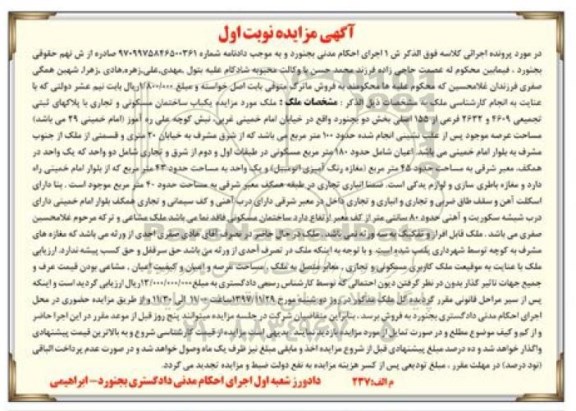 آگهی مزایده نوبت اول
در مورد پرونده اجرائی کلاسه فوق الذکر ش ۱ اجرای احکام مدنی بجنورد و به موجب دادنامه شماره ۹۷۰۹۹۷۵۸۴۶۵۰۰۳۶۱ صادره از ش نهم حقوقی
بجنورد ، فیمابین محکوم له عصمت حاجی زاده فرزند محمدحسن با وکالت محبوبه شادکام علیه بتول ,مهدی,علی,زهره,هادی ,زهرا, شهین همگی
صفری فرزندان غلامحسین که محکوم علیه ها محکومند به فروش ماترک متوفی بابت اصل خواسته و مبلغ ۱/۸۰۰/۰۰۰ ریال بابت نیم عشر دولتی که با
عنایت به انجام کارشناسی ملک با مشخصات ذیل الذکر : مشخصات ملک : ملک مورد مزایده یکباب ساختمان مسکونی و تجاری با پلاکهای ثبتی
تجمیعی ۴۶۰۹ و ۲۶۳۲ فرعی از ۱۵۵ اصلی بخش دو بجنورد واقع در خیابان امام خمینی غربی، نبش کوچه علی ره آموز (امام خمینی ۲۹ می باشد)
مساحت عرصه موجود پس از عقب نشینی انجام شده حدود ۱۰۰ متر مربع می باشد که از شرق مشرف به خیابان ۳۰ متری و قسمتی از ملک از جنوب
مشرف به بلوار امام خمینی می باشد. اعیان شامل حدود ۱۸۰ متر مربع مسکونی در طبقات اول و دوم از شرق و تجاری شامل دو واحد که یک واحد در
همکف، معبر شرقی به مساحت حدود ۴۵ متر مربع (مغازه رنگ آمیزی اتومبیل) و یک واحد به مساحت حدود ۴۳ متر مربع که از بلوار امام خمینی راه
دارد و مغازه باطری سازی و لوازم یدکی است. ضمنا انباری تجاری در طبقه همکف معبر شرقی به مساحت حدود ۴۰ متر مربع موجود است . بنا دارای
اسکلت آهن و سقف طاق ضربی و تجاری و انباری و تجاری داخل در معبر شرقی دارای درب آهنی و کف سیمانی و تجاری همکف بلوار امام خمینی دارای
درب شیشه سکوریت و آهنی حدود ۸۰ سانتی متر از کف معبر ارتفاع دارد ساختمان مسکونی فاقد نما می باشد ملک مشاعی و ترکه مرحوم غلامحسین
صفری می باشد . ملک قابل افراز و تفکیک به سه ورثه نمی باشد . ملک در حال حاضر در تصرف آقای هادی صفری احدی از ورثه می باشد که مغازه های
مشرف به کوچه توسط شهرداری پلمب شده است. و با توجه به اینکه ملک در تصرف أحدی از ورثه می باشد حق سرقفل و حق کسب پیشه ندارد. ارزیابی
ملک با عنایت به موقعیت ملک کاربری مسکونی و تجاری ، معابر متصل به ملک , مساحت عرصه و اعیان و کیفیت اعیان , مشاعی بودن قیمت عرف و
جمیع جهات تاثیر گذار بدون در نظر گرفتن دیون احتمالی که توسط کارشناس رسمی دادگستری به مبلغ ۱۲/۰۰۰/۰۰۰/۰۰۰ ریال ارزیابی گردید است و اینکه
پس از سیر مراحل قانونی مقرر گردید کل ملک مشاعی در روز دو شنبه مورخ ۱۳۹۷/۱۱/۲۹ ساعت ۱۷ الی ۱۱:۳۰ و از طریق مزایده حضوری در محل
اجرای احکام مدنی دادگستری بجنورد به فروش برسد . بنابراین متقاضیان شرکت در جلسه مزایده میتوانند پنج روز قبل از موعد مقرر در این اجرا حاضر
و از کم و کیف موضوع مطلع و در صورت تمایل از مورد مزایده بازدید نمایند. بدیهی است مزایده از قیمت کارشناسی شروع و به بالاترین قیمت پیشنهادی
واگذار خواهد شد و ده درصد مبلغ پیشنهادی قبل از شروع مزایده اخذ و مابقی مبلغ نیز ظرف یک ماه وصول خواهد شد و در صورت عدم پرداخت الباقی
(نود درصد) در مهلت مقرر ، مبلغ تودیعی پس از کسر هزینه مزایده به نفع دولت ضبط و مزایده تجدید می گردد.
م الف: ۲۳۷ دادورز شعبه اول اجرای احکام مدنی دادگستری بجنورد- ابراهیمی